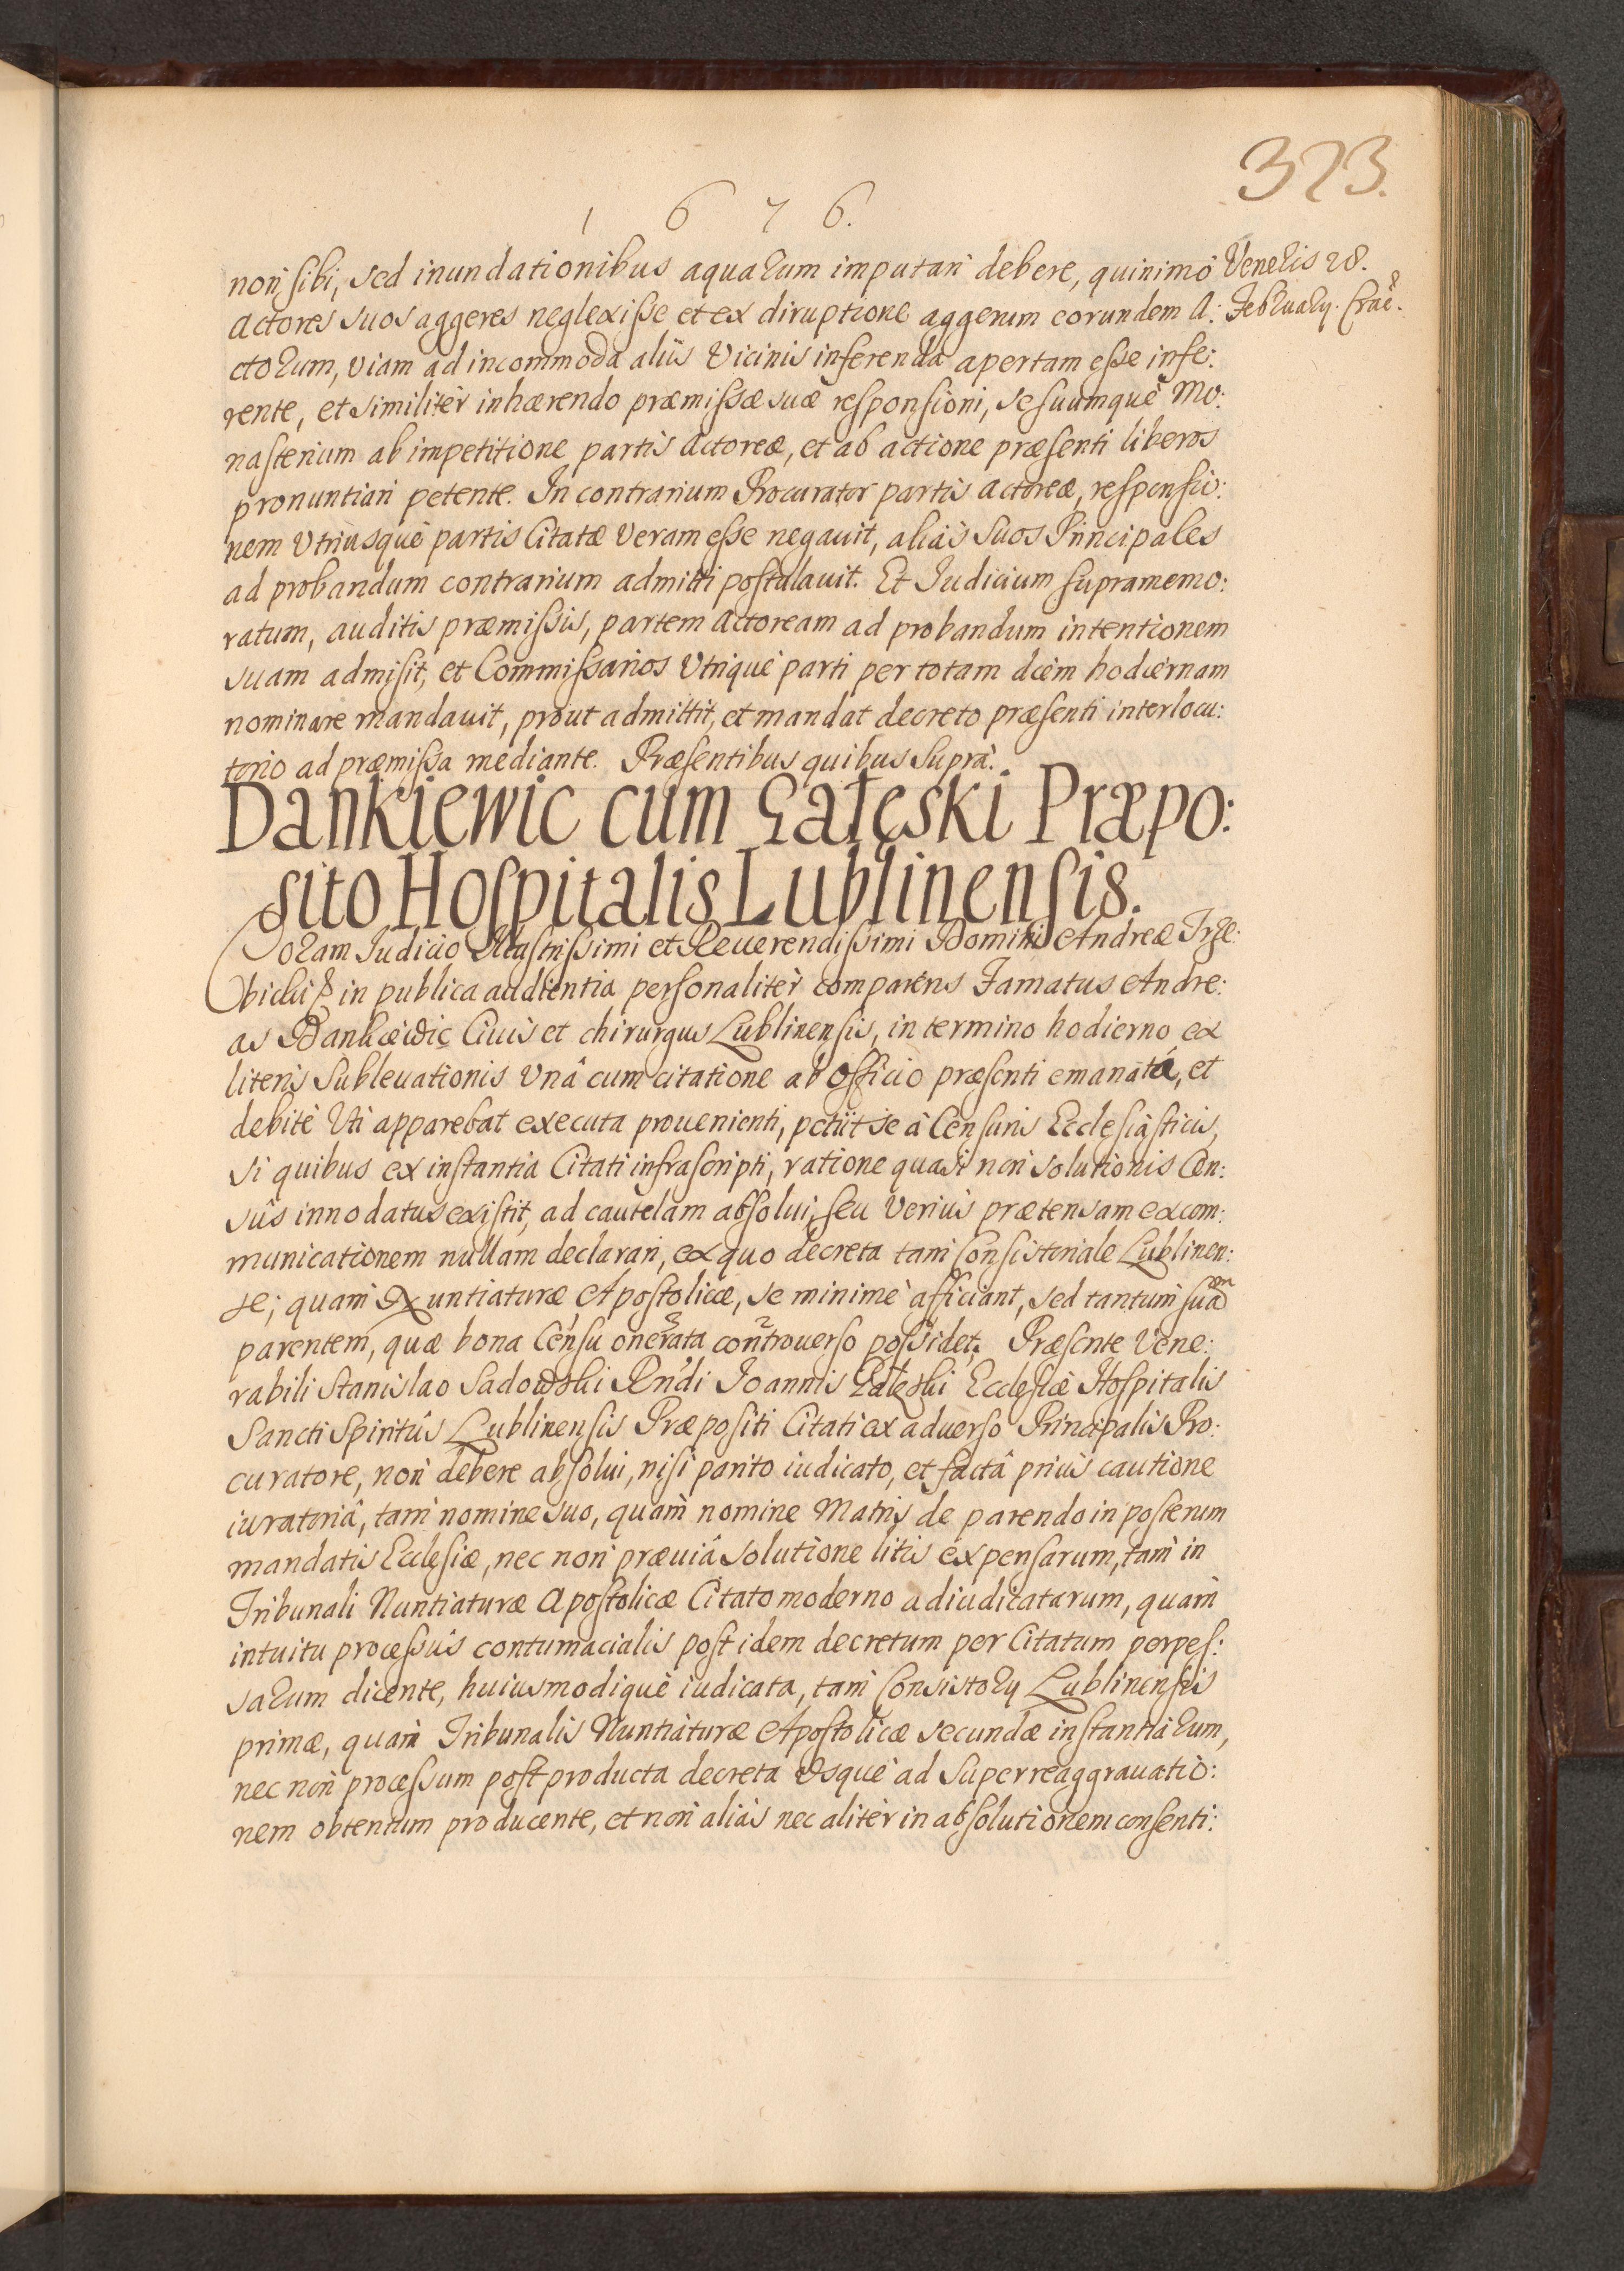 323.
1 6 7 6.
non sibi, sed inundationibus aquarum imputari debere, quinimò
Veneris 28.
Actores suos aggeres neglexisse et ex diruptione aggerum eorundem A:
February. Crać.
ctorum, viam ad incommoda aliis Vicinis inferenda apertam esse infe:
rente, et similitèr inhærendo præmissæ suæ responsioni, se suumquè Mo:
nasterium ab impetitione partis Actoreæ, et ab actione præsenti liberos
pronuntiari petente. In contrarium Procurator partis actoreæ, responsio:
nem Vtriusquè partis Citatæ Veram esse negauit, aliàs Suos Principales
ad probandum contrarium admitti postulauit. Et Iudicium supramemo:
ratum, auditis præmissis, partem Actoream ad probandum intentionem
suam admisit, et Commissarios Vtriquè parti per totam diem hodiernam
nominare mandauit, proùt admittit, et mandat decreto præsenti interlocu:
torio ad præmissa mediante. Præsentibus quibus Suprà.
Dankiewic cum Załeski Præpo:
sito Hospitalis Lublinensis.
Coram Iudicio Illustrissimi et Reuerendissimi Domini Andreæ Trze:
bicki in publica audientia personalitèr comparens Famatus Andre:
as Dankiewic Ciuis et chirurgus Lublinensis, in termino hodierno, ex
literis Subleuationis Vnâ cum citatione ab officio præsenti emanatâ, et
debitè Vti apparebat executa prouenienti, petiit se à Censuris Ecclesiasticis,
si quibus ex instantia Citati infrascripti, ratione quasi non solutionis Cen:
sûs innodatus existit, ad cautelam absolui, seu Veriùs prætensam excom:
municationem nullam declarari, ex quo decreta tam Consistoriale Lublinen:
se; quam Nuntiaturæ Apostolicæ, se minimè afficiant, sed tantum suam
parentem, quæ bona Censu onerata controuerso possidet. Præsente Vene:
rabili Stanislao Sadowski Rñdi Ioannis Załeski Ecclesiæ Hospitalis
Sancti Spiritûs Lublinensis Præpositi Citati ex aduerso Principalis Pro:
curatore, non debere absolui, nisi parito iudicato, et factâ priùs cautione
iuratoriâ, tam nomine suo, quàm nomine Matris de parendo in posterum
mandatis Ecclesiæ, nec non præuiâ solutione litis expensarum, tam in
Tribunali Nuntiaturæ Apostolicæ Citato moderno adiudicatarum, quàm
intuitu processûs contumacialis post idem decretum per Citatum perpes:
sarum dicente, huiusmodiquè iudicata, tam Consistory Lublinensis
primæ, quàm Tribunalis Nuntiaturæ Apostolicæ secundæ instantiarum,
nec non processum post producta decreta Vsquè ad Superreaggrauatio:
nem obtentum producente, et non aliàs nec alitèr in absolutionem consenti: